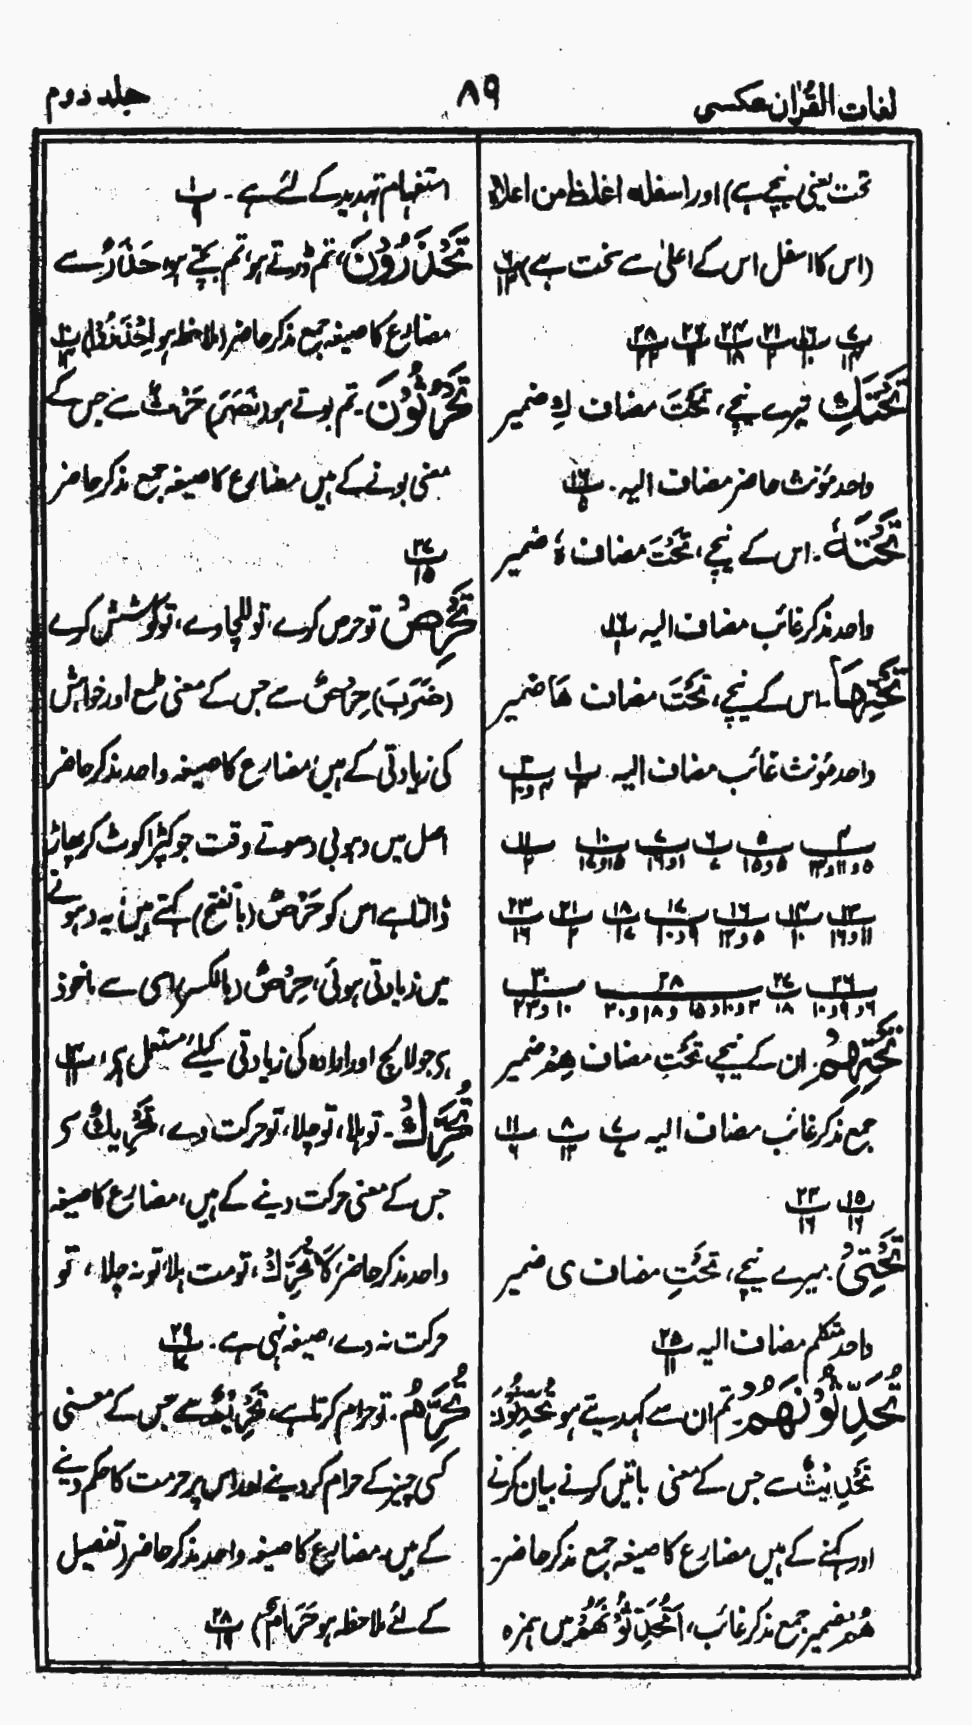 لغات القرآن عکسی
۸۹
جلد دوم
تحت یعنی نیچے ہے) اور اسفلہ اغلظ من اعلاہ
(اس کا اسفل اس کے اعلیٰ سے سخت ہے)
تَحْتَكِ تیرے نیچے، تَحْتَ مضاف كِ ضمیر
واحد مؤنث حاضر مضاف الیہ۔ ۱۶/۵
تَحْتَهٗ۔ اس کے نیچے، تَحْتَ مضاف ہٗ ضمیر
واحد مذکر غائب مضاف الیہ ۱۶/۱
تَحْتِهَا۔ اس کے نیچے، تَحْتَ مضاف هَا ضمیر
واحد مؤنث غائب مضاف الیہ
تَحْتِهِمْ۔ ان کے نیچے تَحْتِ مضاف هِمْ ضمیر
جمع مذکر غائب مضاف الیہ ۷/۴ ۸/۱۲ ۱۱/۶
۱۵/۱۶ ۲۳/۱۶
تَحْتِیْ۔ میرے نیچے، تَحْتِ مضاف ی ضمیر
واحد متکلم مضاف الیہ ۲۵/۱۱
تُحَدِّثُوْنَهُمْ۔ تم ان سے کہہ دیتے ہو تُحَدِّثُوْنَ
تَحْدِیْثٌ سے جس کے معنی باتیں کرنے بیان کرنے
اور کہنے کے ہیں مضارع کا صیغہ جمع مذکر حاضر۔
هُمْ ضمیر جمع مذکر غائب، اَتُحَدِّثُوْنَهُمْ میں ہمزہ
استفہام تہدید کے لئے ہے۔ ۱/۹
تَحْذَرُوْنَ، تم ڈرتے ہو، تم بچتے ہو، حَذَرٌ سے
مضارع کا صیغہ جمع مذکر حاضر (ملاحظہ ہو
تَحْرُثُوْنَ۔ تم بوتے ہو (نَصَرَ) حَرْثٌ سے جس کے
معنی بونے کے ہیں مضارع کا صیغہ جمع مذکر حاضر
۲۷/۱۵
تَحْرِصْ تو حرص کرے، تو للچاوے، تو کوشش کرے
(ضَرَبَ) حِرْصٌ سے جس کے معنی طمع اور خواہش
کی زیادتی کے ہیں، مضارع کا صیغہ واحد مذکر حاضر
اصل میں دھوبی دھوتے وقت جو کپڑا کوٹ کر پھاڑ
ڈالتا ہے اس کو حَرْصٌ (بالفتح) کہتے ہیں، یہ دھونے
میں زیادتی ہوئی، حِرْصٌ (بالکسر) اسی سے ماخوذ
ہے جو لالچ اور ارادہ کی زیادتی کیلئے مستعمل ہے،
تُحَرِّكْ۔ تو ہلا، تو چلا، تو حرکت دے، تَحْرِیْكٌ سے
جس کے معنی حرکت دینے کے ہیں، مضارع کا صیغہ
واحد مذکر حاضر، لَا تُحَرِّكْ، تو مت ہلا، تو نہ چلا، تو
حرکت نہ دے، صیغہ نہی ہے۔ ۲۹/۱۷
تُحَرِّمُ۔ تو حرام کرتا ہے، تَحْرِیْمٌ سے جس کے معنی
کسی چیز کے حرام کر دینے اور اس پر حرمت کا حکم دینے
کے ہیں۔ مضارع کا صیغہ واحد مذکر حاضر (تفصیل
کے لئے ملاحظہ ہو حَرَامٌ) ۲۸/۱۹